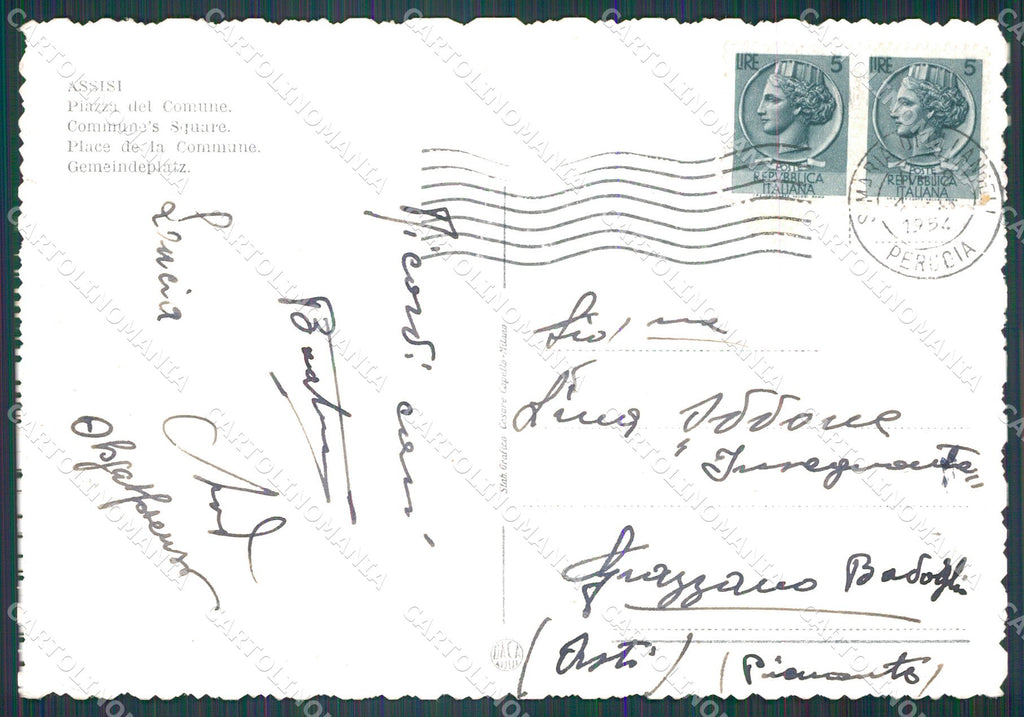 ASSISI
Piazza del Comune.
Commune's Square.
Place de la Commune.
Gemeindeplatz.
LIRE 5
POSTE
REPVBBLICA
ITALIANA
LIRE 5
POSTE
REPVBBLICA
ITALIANA
1954
PERUGIA
Ricordi cari
Lucia
Stab. Grafico Cesare Capello - Milano
Lina Oddone
"Insegnante"
Grazzano Badoglio
(Asti) (Piemonte)
CARTOLINOMANIA